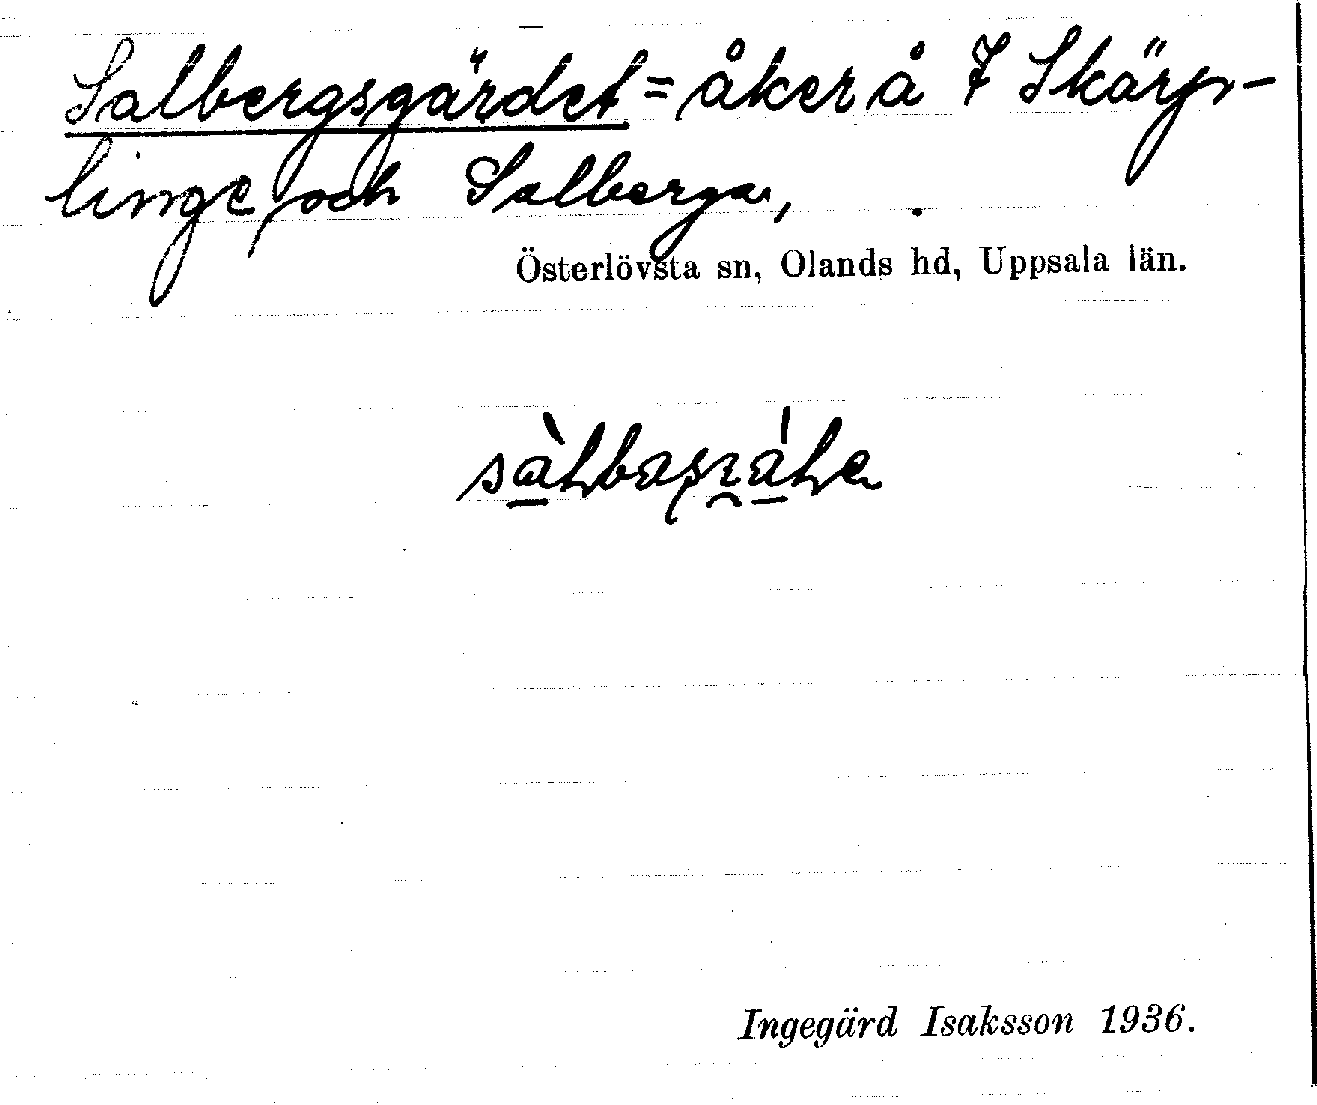 Salbergsgärdet = åker å F Skärp-
linge och Salberga,
Österlövsta sn, Olands hd, Uppsala län.
Ingegärd Isaksson 1936.